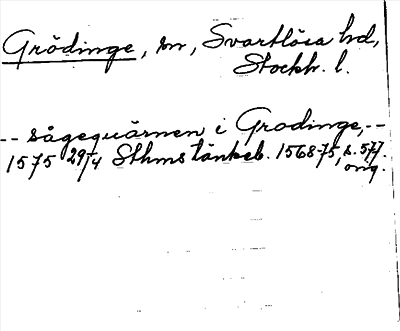 Grödinge, sn, Svartlösa hd,
Stockh. l.
-- sågequärnen i Grodinge, --
1575 29/4 Sthms tänkeb. 1568-75, s. 577.
orig.